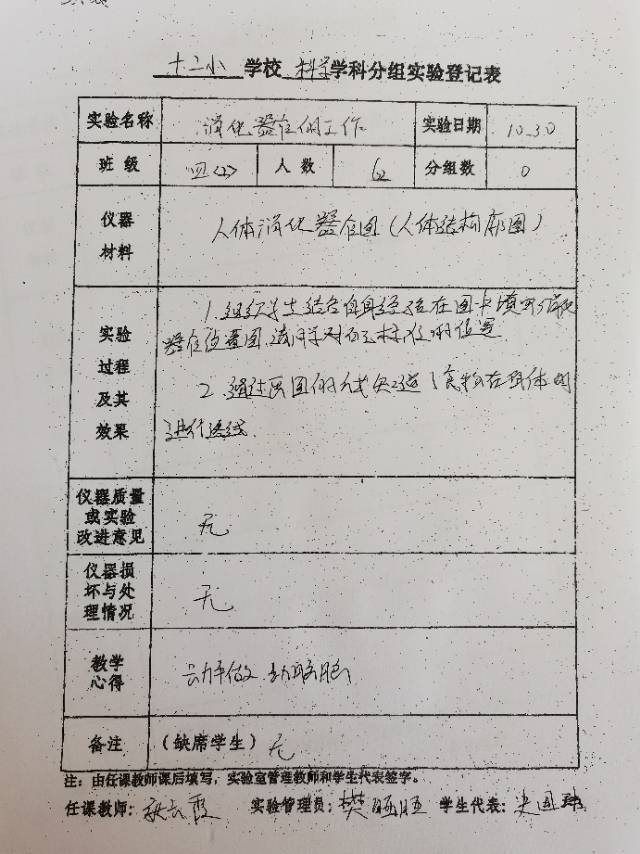 十二小 学校 科学 学科分组实验登记表
实验名称 消化器官的工作 实验日期 10.30
班级 四<2> 人数 62 分组数 0
仪器材料 人体消化器官图(人体结构廓图)
实验过程及其效果 1.组织学生结合自身经验在图卡填写消化
器官位置图,
2.通过画图的方式 食物在身体内
进行路线.
仪器质量或实验改进意见 无
仪器损坏与处理情况 无
教学心得 动手做 动脑
备注 (缺席学生) 无
注:由任课教师课后填写,实验室管理教师和学生代表签字。
任课教师: 实验管理员:樊 学生代表:史国